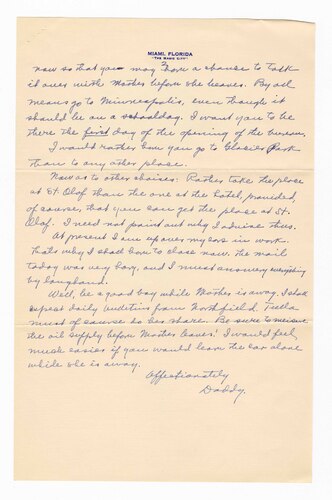 MIAMI, FLORIDA
"THE MAGIC CITY"
now so that you may have a chance to talk
it over with Mother before she leaves. By all
means go to Minneapolis, even though it
should be on a schoolday. I want you to be
there the first day of the opening of the bureau.
I would rather have you go to Glacier Park
than to any other place.
Now as to other choices: Rather take the place
at St. Olaf than the one at the hotel, provided,
of course, that you can get the place at St.
Olaf. I need not point out why I advise thus.
At present I am up over my ears in work.
That's why I shall have to close now. The mail
today was very heavy, and I must answer everything
by longhand.
Well, be a good boy while Mother is away. I shall
expect daily bulletin from Northfield.
must of course do her share. Be sure to measure
the oil supply before Mother leaves! I would feel
much easier if you would leave the car alone
while she is away.
Affectionately
Daddy.